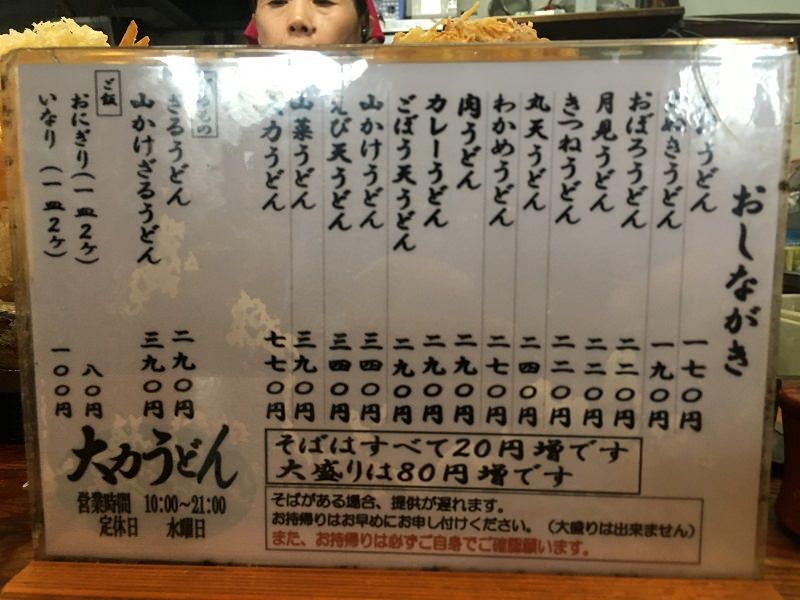 おしながき
うどん 一七〇円
ぬきうどん 一九〇円
おぼろうどん 二二〇円
月見うどん 二二〇円
きつねうどん 二二〇円
丸天うどん 二四〇円
わかめうどん 二七〇円
肉うどん 二九〇円
カレーうどん 二九〇円
ごぼう天うどん 二九〇円
山かけうどん 三四〇円
えび天うどん 三四〇円
山菜うどん 三九〇円
力うどん 七七〇円
もの
ざるうどん 二九〇円
山かけざるうどん 三九〇円
ご飯
おにぎり(一皿2ヶ) 八〇円
いなり(一皿2ヶ) 一〇〇円
そばはすべて20円増です
大盛りは80円増です
そばがある場合、提供が遅れます。
お持帰りはお早めにお申し付けください。(大盛りは出来ません)
また、お持帰りは必ずご自身でご確認願います。
大力うどん
営業時間 10:00~21:00
定休日 水曜日